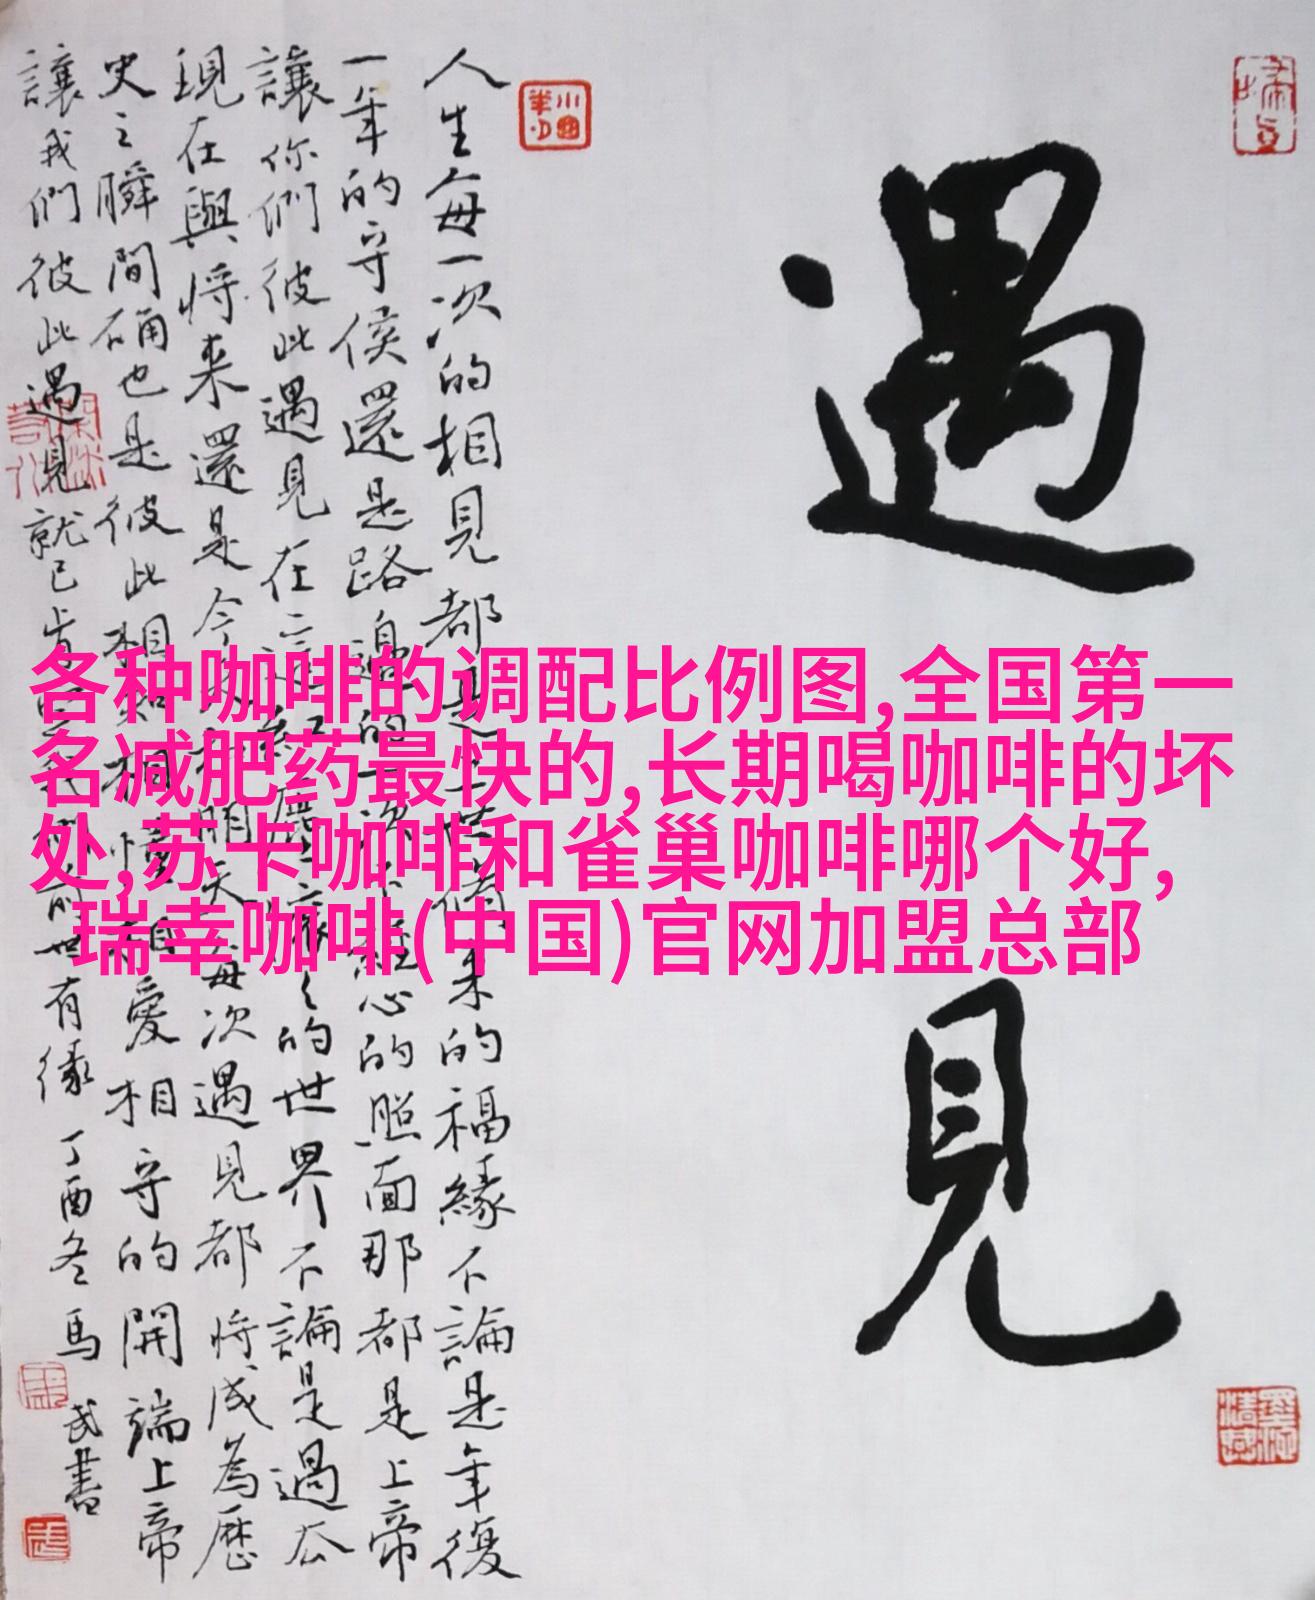 遇見
人生每一次的相見都是上世修来的福緣不論是年復
一年的守侯還是路邊的一次不經心的照面那都是上帝
讓你們彼此遇見在這紅塵滾滚的世界不論是過去
現在與将来還是今天明天每次遇見都将成為歷
史之瞬間确也是彼此相知相惜相愛相守的開端上帝
讓我們彼此遇見就已肯定我們前世有缘丁酉冬馬武書
各种咖啡的调配比例图,全国第一
名减肥药最快的,长期喝咖啡的坏
处,苏卡咖啡和雀巢咖啡哪个好,
瑞幸咖啡(中国)官网加盟总部